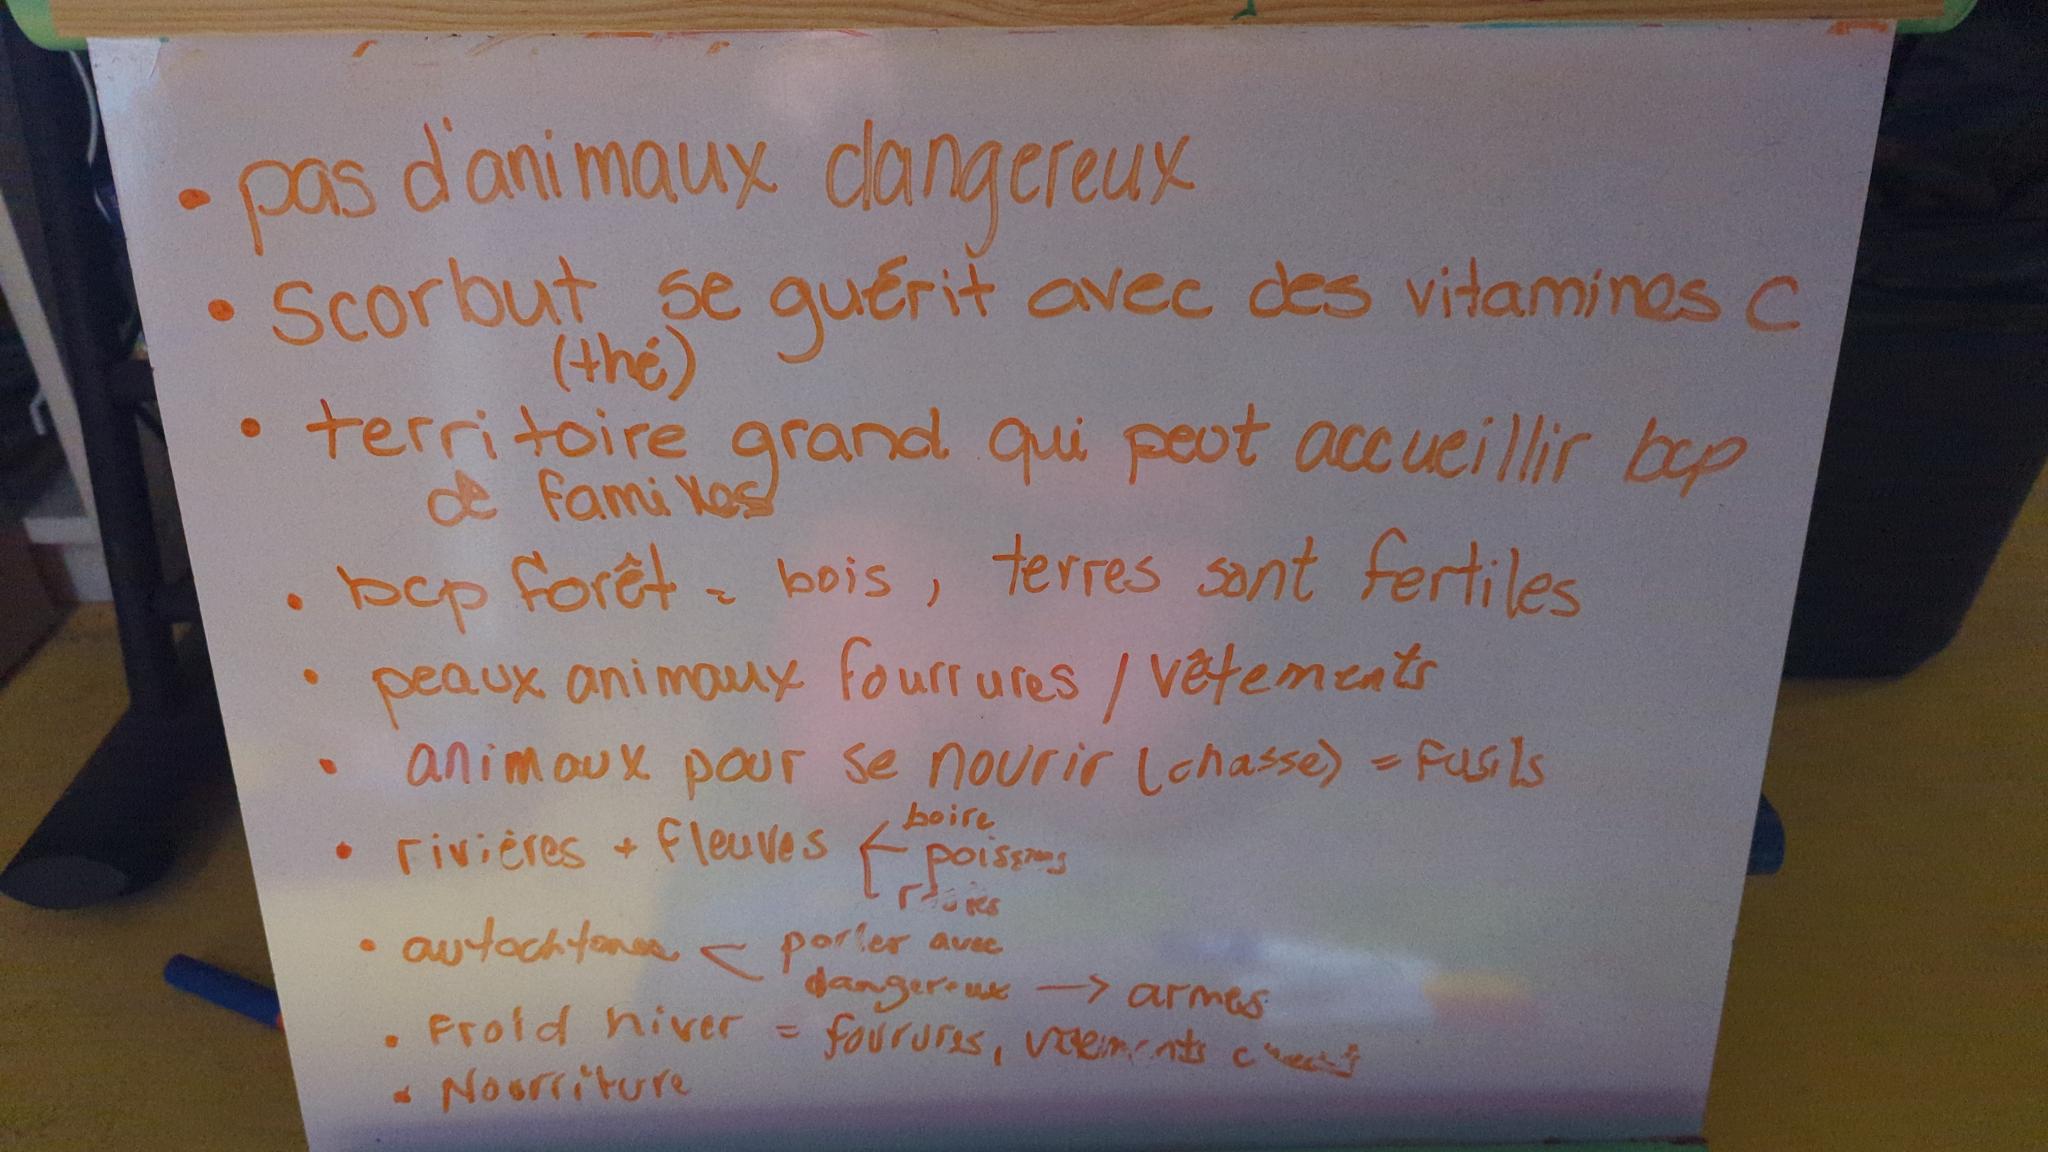 • pas d'animaux dangereux
• Scorbut se guérit avec des vitamines C
(thé)
• territoire grand qui peut accueillir bcp
de familles
• bcp forêt = bois, terres sont fertiles
• peaux animaux fourrures / vêtements
• animaux pour se nourrir (chasse) = fusils
• rivières + fleuves
boire
poissons
• autochtones < parler avec
dangereux → armes
• Froid hiver = fourrures, vêtements
• Nourriture